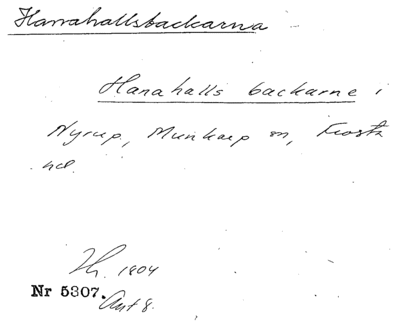 Hanahallsbackarna
Hanahalls backarne i
Nyrup, Munkarp sn, Frosta
hd.
Th. 1804
Nr 5307.
Ant 8.